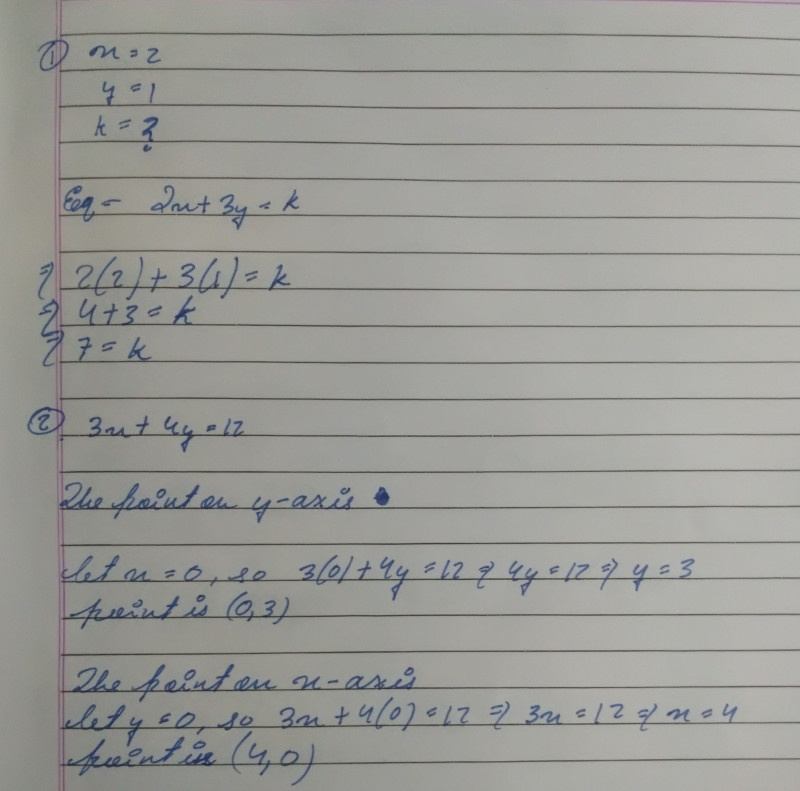 ① x = 2
y = 1
k = ?
Eq - 2x + 3y = k
⇒ 2(2) + 3(1) = k
⇒ 4 + 3 = k
⇒ 7 = k
② 3x + 4y = 12
The point on y-axis
let x = 0, so 3(0) + 4y = 12 ⇒ 4y = 12 ⇒ y = 3
point is (0,3)
The point on x-axis
let y = 0, so 3x + 4(0) = 12 ⇒ 3x = 12 ⇒ x = 4
point is (4,0)